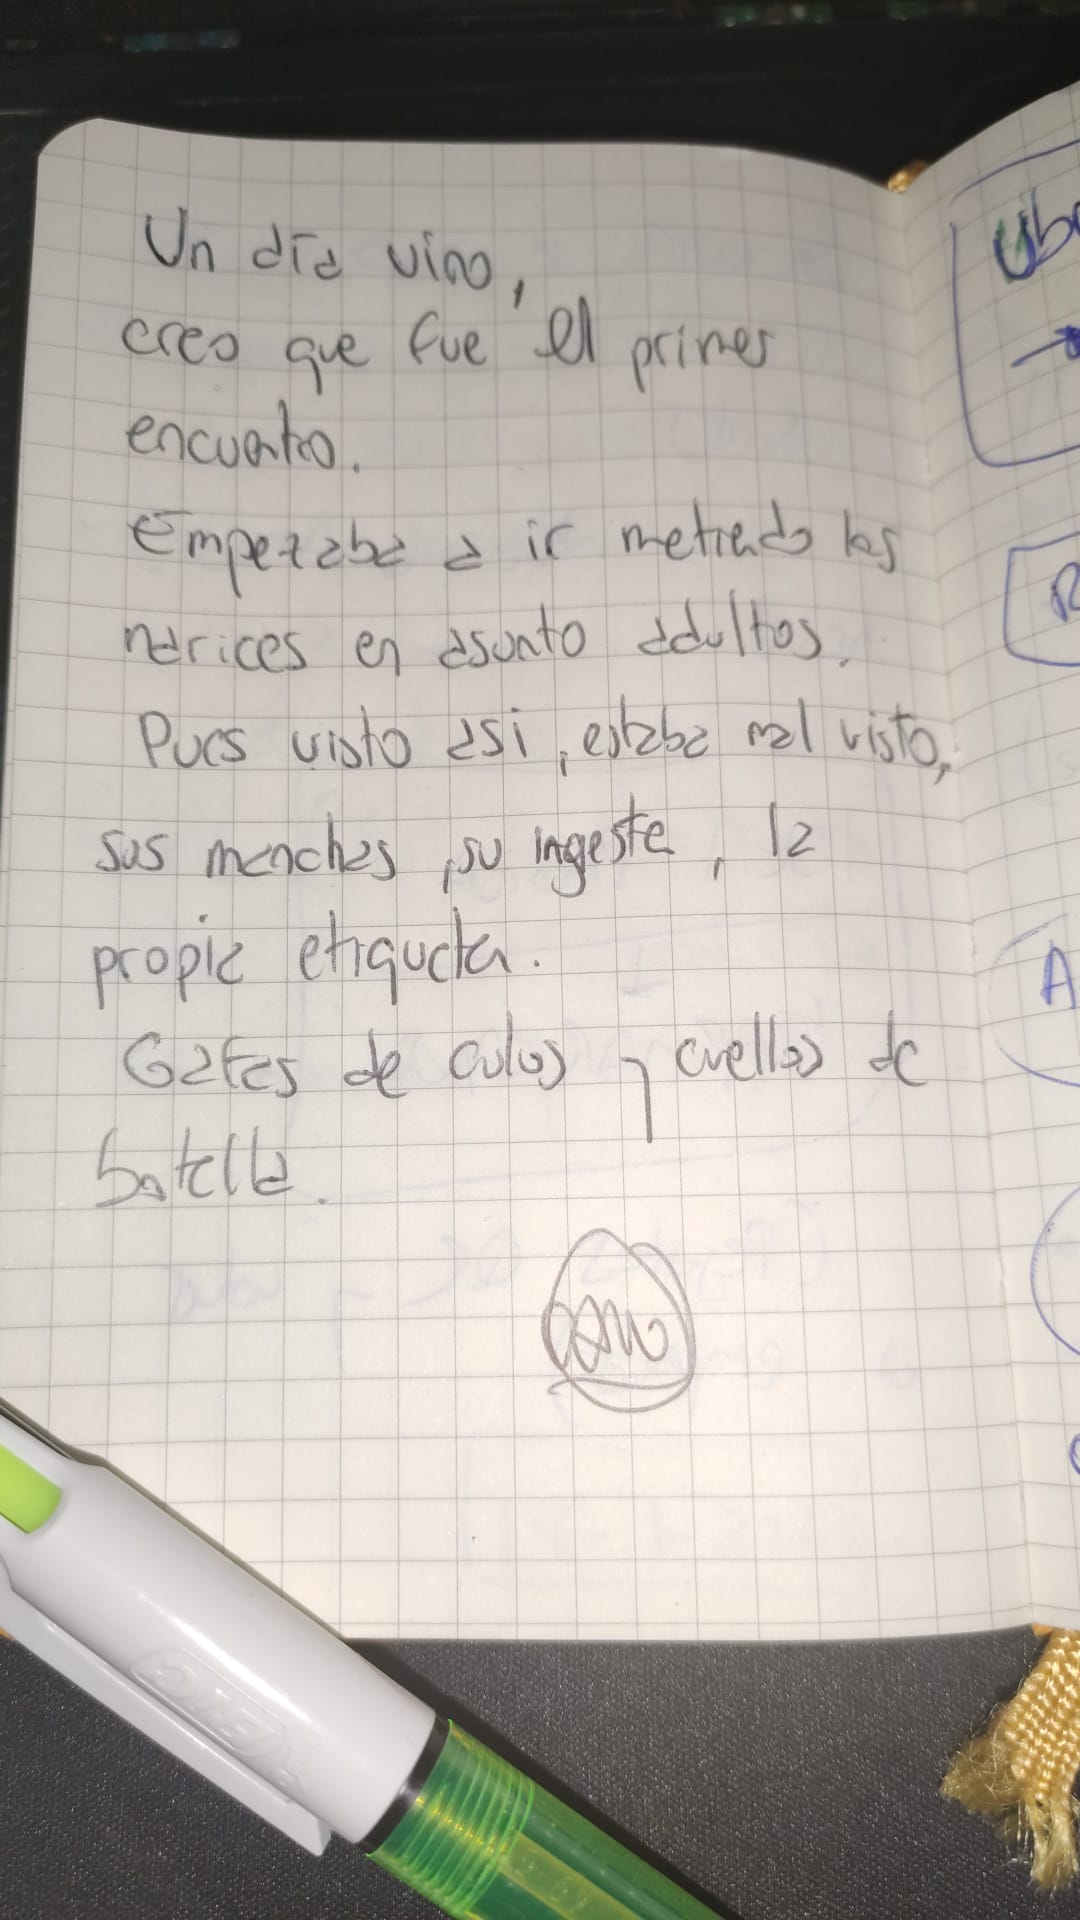 Un día vino,
creo que fue el primer
encuentro.
Empezaba a ir metiendo las
narices en asunto adultos.
Pues visto así, estaba mal visto,
sus manchas, su ingesta, la
propia etiqueta.
Gafas de culos y cuellos de
botella.
Ub
R
A
BIC